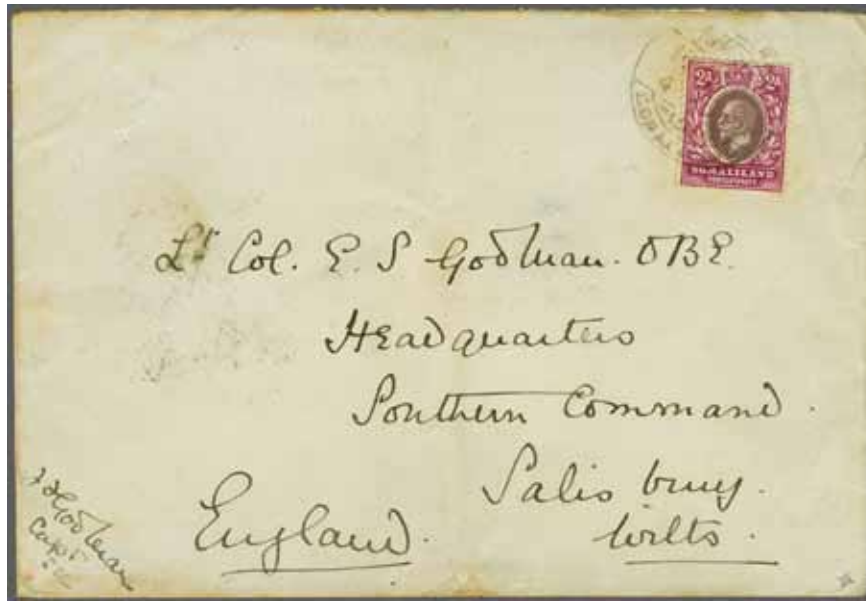 2A 2A
SOMALILAND
PROTECTORATE
Lt Col. E. S Godman. OBE.
Headquarters
Southern Command.
Salisbury.
Wilts.
England.
Godman
Capt